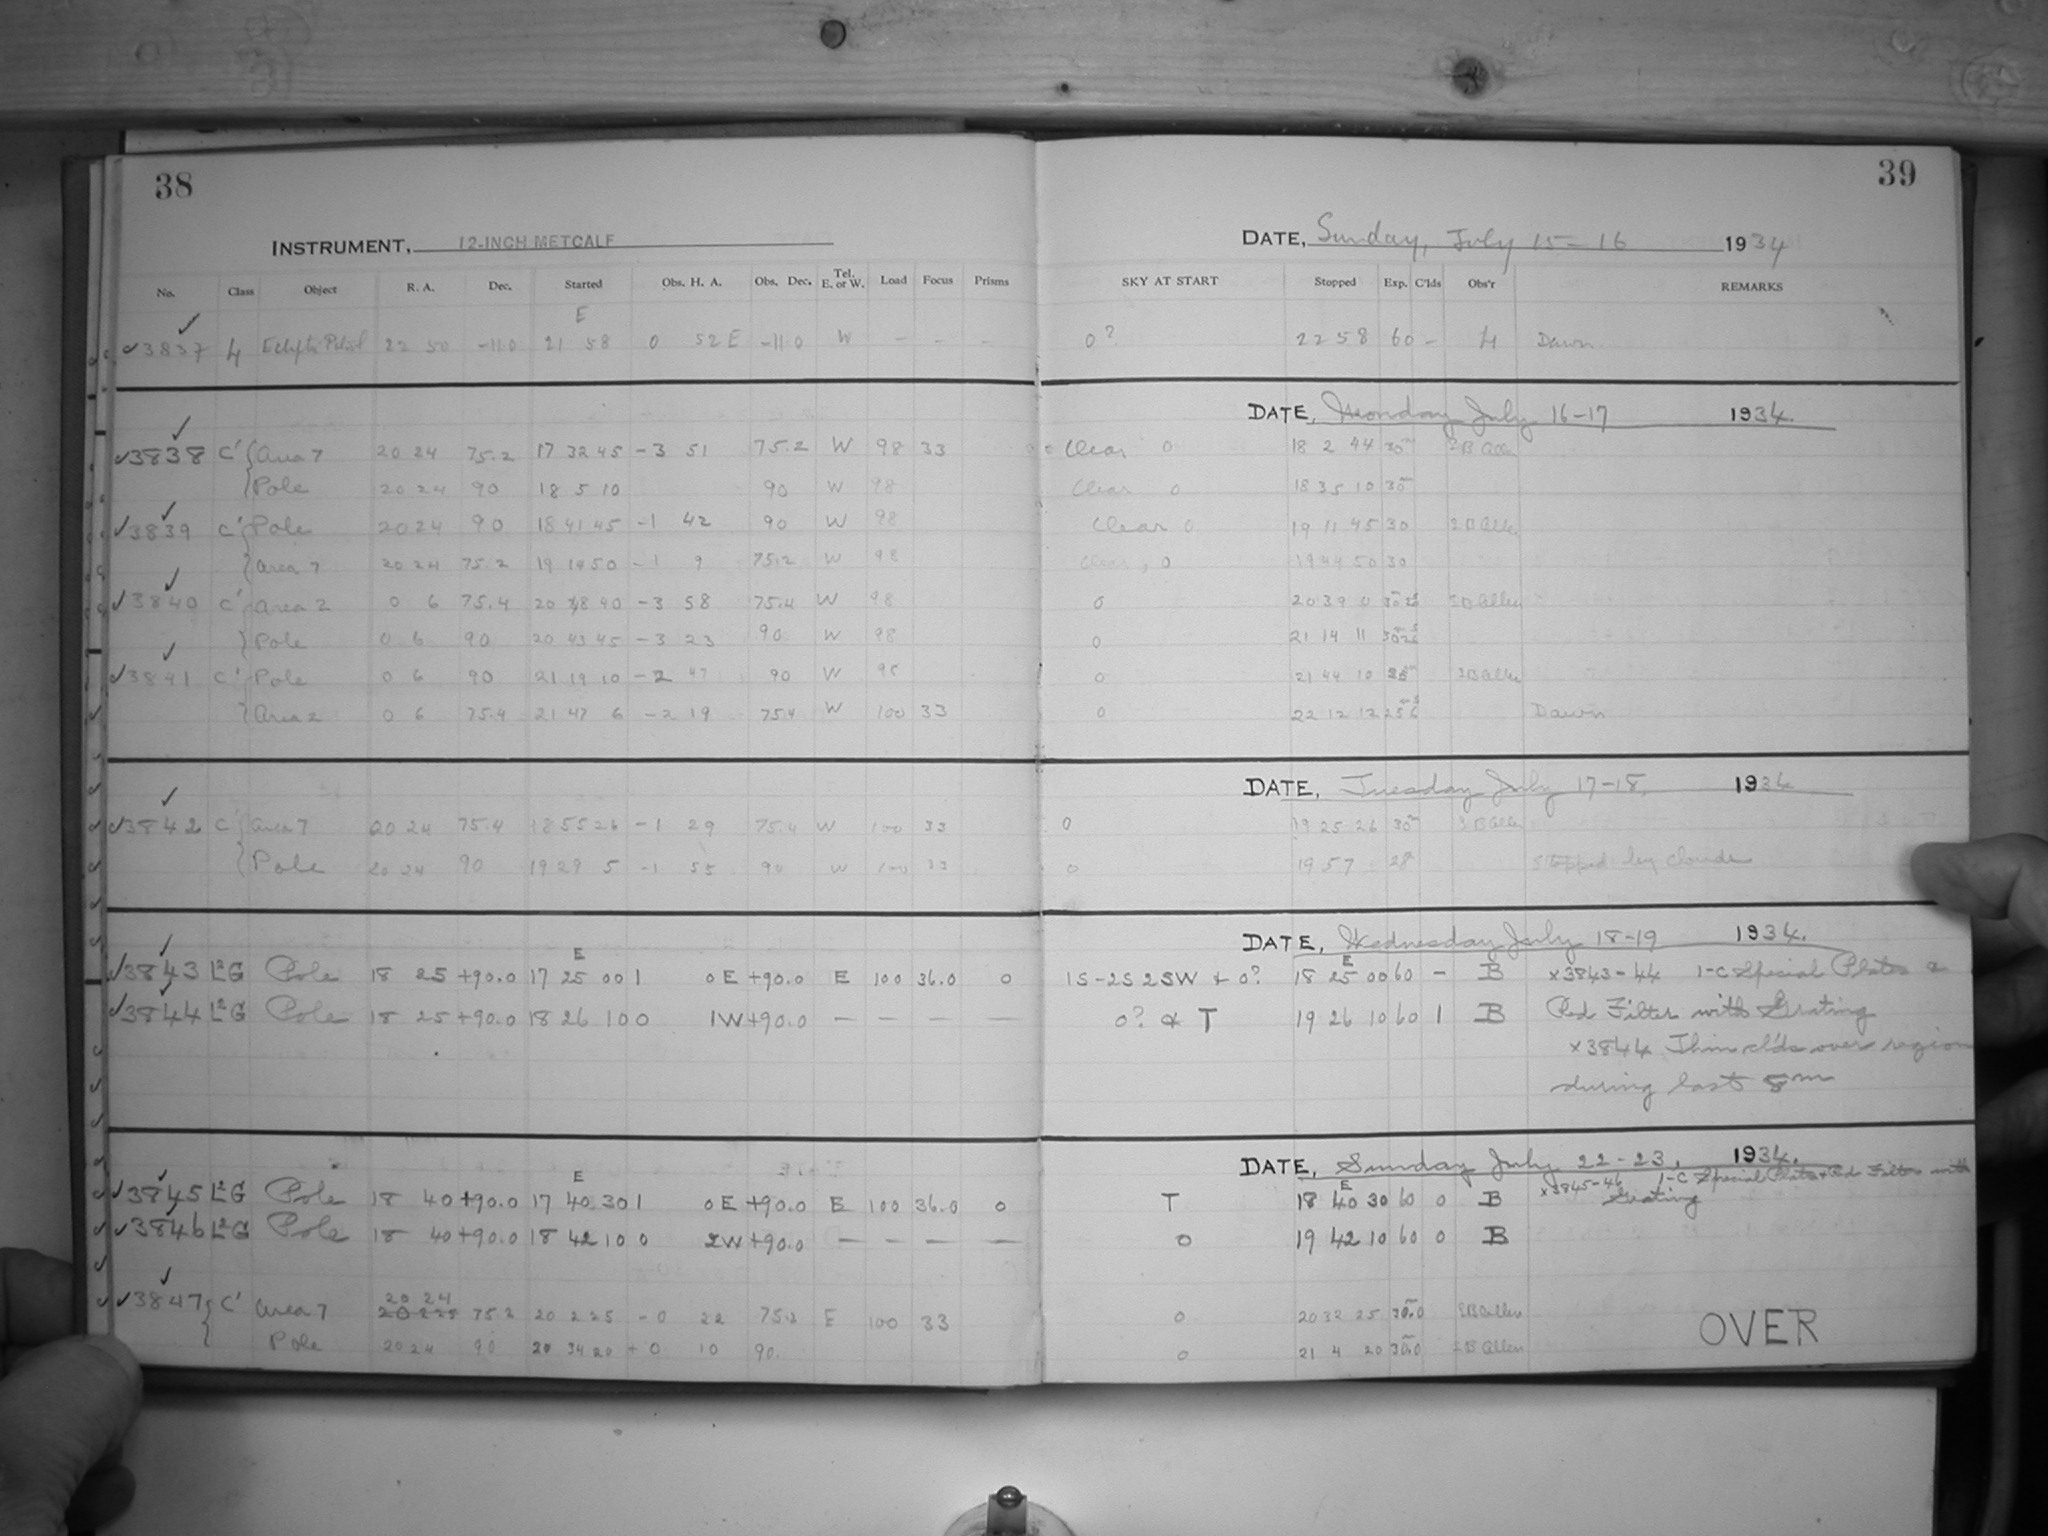 38
INSTRUMENT, 12-INCH METCALF
No. Class Object R. A. Dec. Started Obs. H. A. Obs. Dec. Tel. E. or W. Load Focus Prisms
E
3837 22 50 -11.0 21 58 0 52 E -11.0 W - - -
3838 C' Area 7 20 24 75.2 17 32 45 -3 51 75.2 W 98 33
Pole 20 24 90 18 5 10 90 W 98
3839 C' Pole 20 24 90 18 41 45 -1 42 90 W 98
Area 7 20 24 75.2 19 14 50 -1 9 75.2 W 98
3840 C' Area 2 0 6 75.4 20 8 40 -3 58 75.4 W 98
Pole 0 6 90 20 43 45 -3 23 90 W 98
3841 C' Pole 0 6 90 21 19 10 -2 47 90 W 98
Area 2 0 6 75.4 21 47 6 -2 19 75.4 W 100 33
3842 C' Area 7 20 24 75.4 18 55 26 -1 29 75.4 W 100 33
Pole 20 24 90 19 29 5 -1 55 90 W 100 33
E
3843 L²G Pole 18 25 +90.0 17 25 00 1 0 E +90.0 E 100 36.0 0
3844 L²G Pole 18 25 +90.0 18 26 10 0 1W +90.0 — — — —
E
3845 L²G Pole 18 40 +90.0 17 40 30 1 0 E +90.0 E 100 36.0 0
3846 L²G Pole 18 40 +90.0 18 42 10 0 2W +90.0 — — — —
20 24
3847 C' Area 7 75.2 20 2 25 -0 22 75.2 E 100 33
Pole 20 24 90 20 34 20 +0 10 90.
39
DATE, Sunday, July 15-16 1934
SKY AT START Stopped Exp. C'lds Obs'r REMARKS
0? 22 58 60 - H Dawn
DATE, Monday July 16-17 1934.
Clear 0 18 2 44 30m LB Allen
Clear 0 18 35 10 30m
Clear 0 19 11 45 30 LB Allen
Clear, 0 19 44 50 30
0 20 39 0 LB Allen
0 21 14 11
0 21 44 10 25m LB Allen
0 22 12 12 25m 6s Dawn
DATE, Tuesday July 17-18, 1934
0 19 25 26 30m LB Allen
0 19 57 28 Stopped by clouds
DATE, Wednesday July 18-19 1934.
E
1S-2S 2SW & 0? 18 25 00 60 - B x3843-44 1-C Special Plates &
0? & T 19 26 10 60 1 B Red Filter with Grating
x3844 Thin cl'ds over region
during last 8m
DATE, Sunday July 22-23, 1934.
x3845-46 1-C Special Plates & Red Filter with
E
T 18 40 30 60 0 B Grating
0 19 42 10 60 0 B
0 20 32 25 30m.0 LB Allen
0 21 4 20 30m.0 LB Allen
OVER